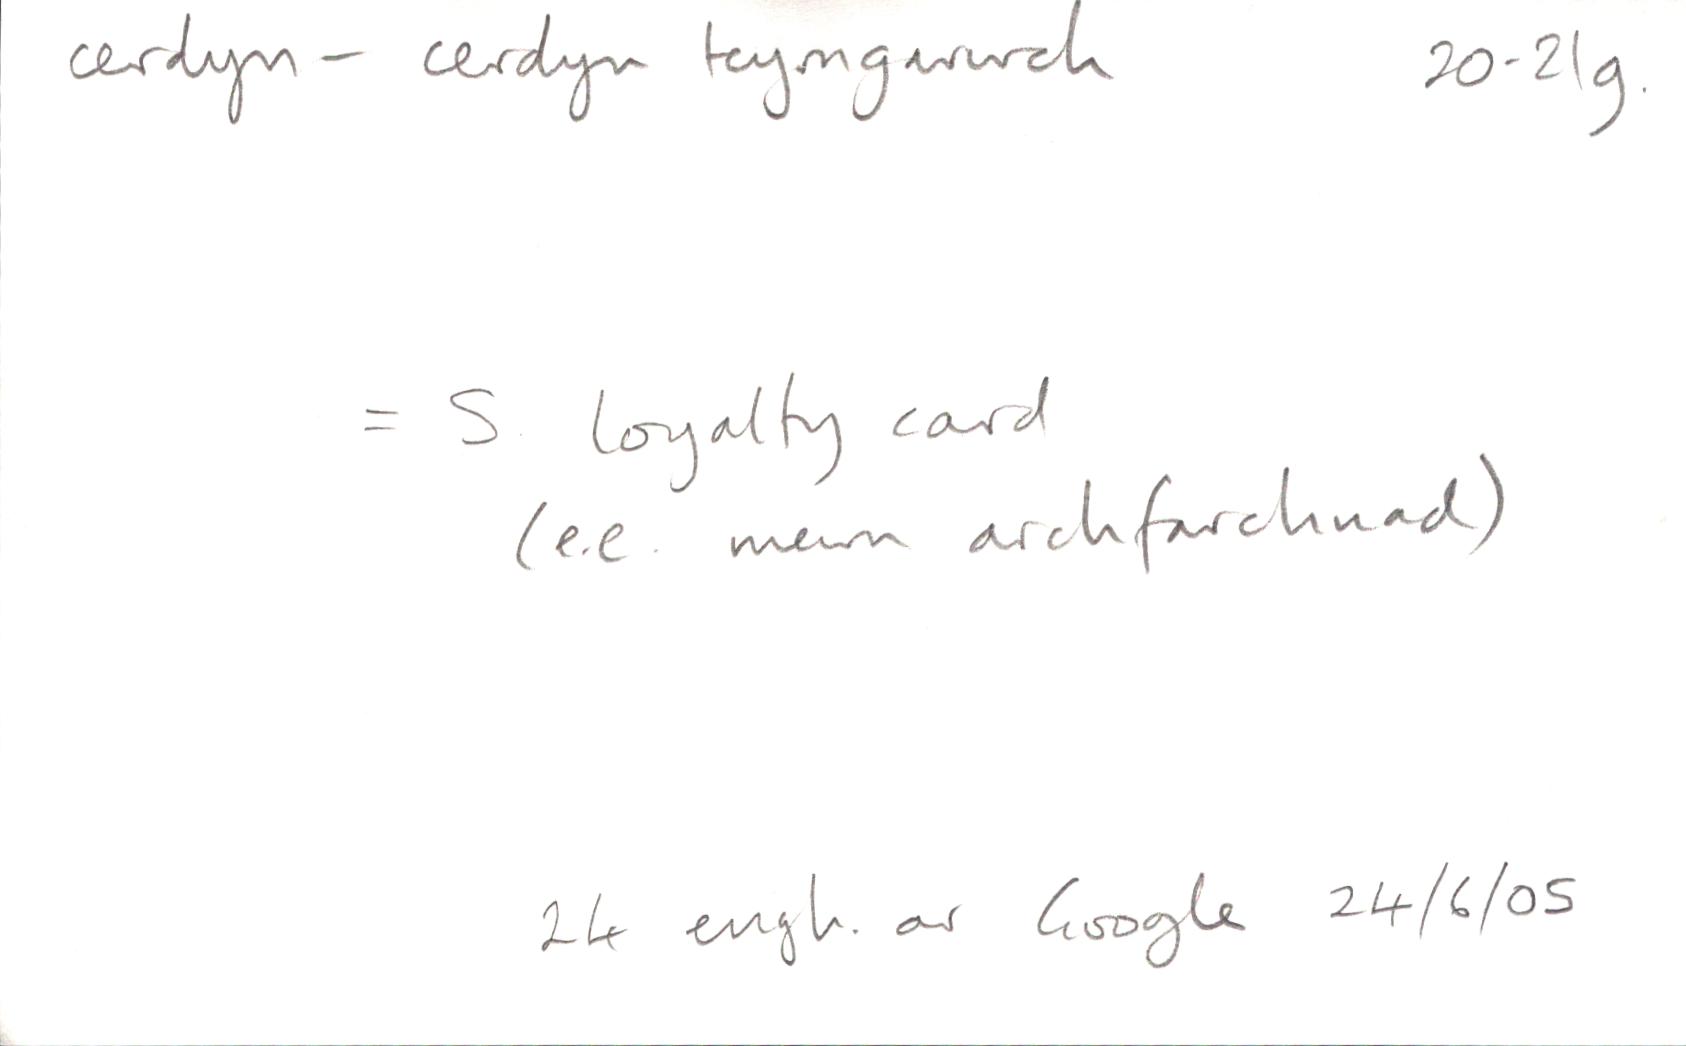 cerdyn – cerdyn teyrngarwch 20-21g.
= S. loyalty card
(e.e. mewn archfarchnad)
24 engh. ar Google 24/6/05